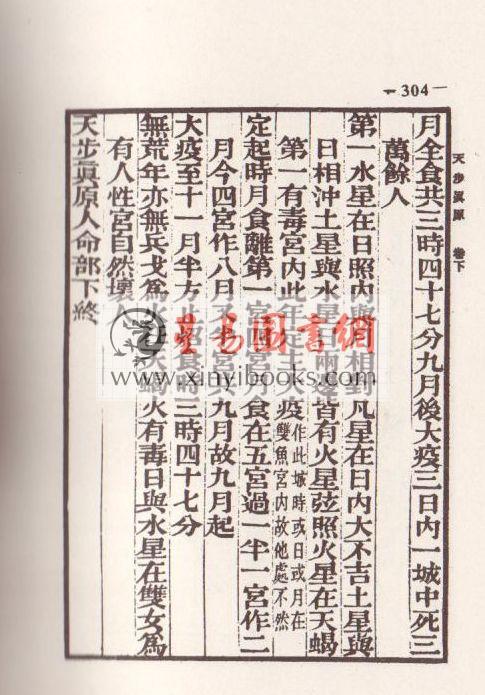 —304—
天步真原 卷下
月全食共三時四十七分九月後大疫三日內一城中死三
萬餘人
第一水星在日照內與月相對凡星在日內大不吉土星與
日相沖土星與水星日兩處皆有火星弦照火星在天蝎
第一有毒宮內此年定主大疫作此城時或日或月在
雙魚宮內故他處不然
定起時月食離第一宮四宮月食在五宮過一半一宮作二
月今四宮作八月不全宮共九月故九月起
大疫至十一月半方止
三時四十七分
無荒年亦無兵戈為
天蝎火有毒日與水星在雙女為
有人性宮自然壞人
天步眞原人命部下終
星易圖書網
www.xinyibooks.com